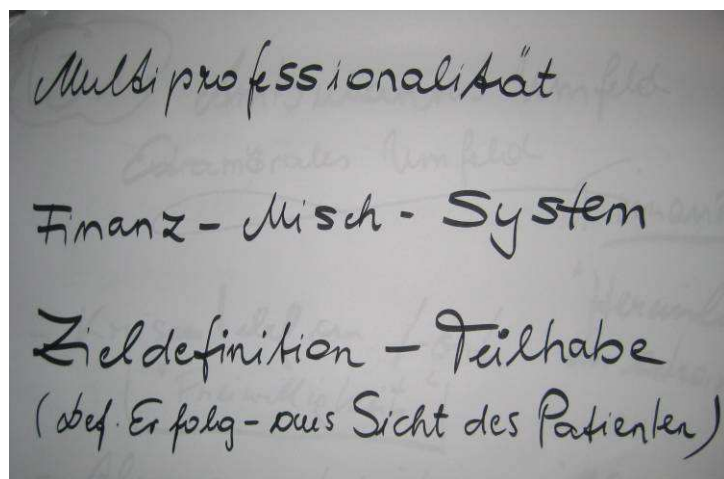 Multiprofessionalität
Finanz - Misch - System
Zieldefinition - Teilhabe
(Def. Erfolg - aus Sicht des Patienten)